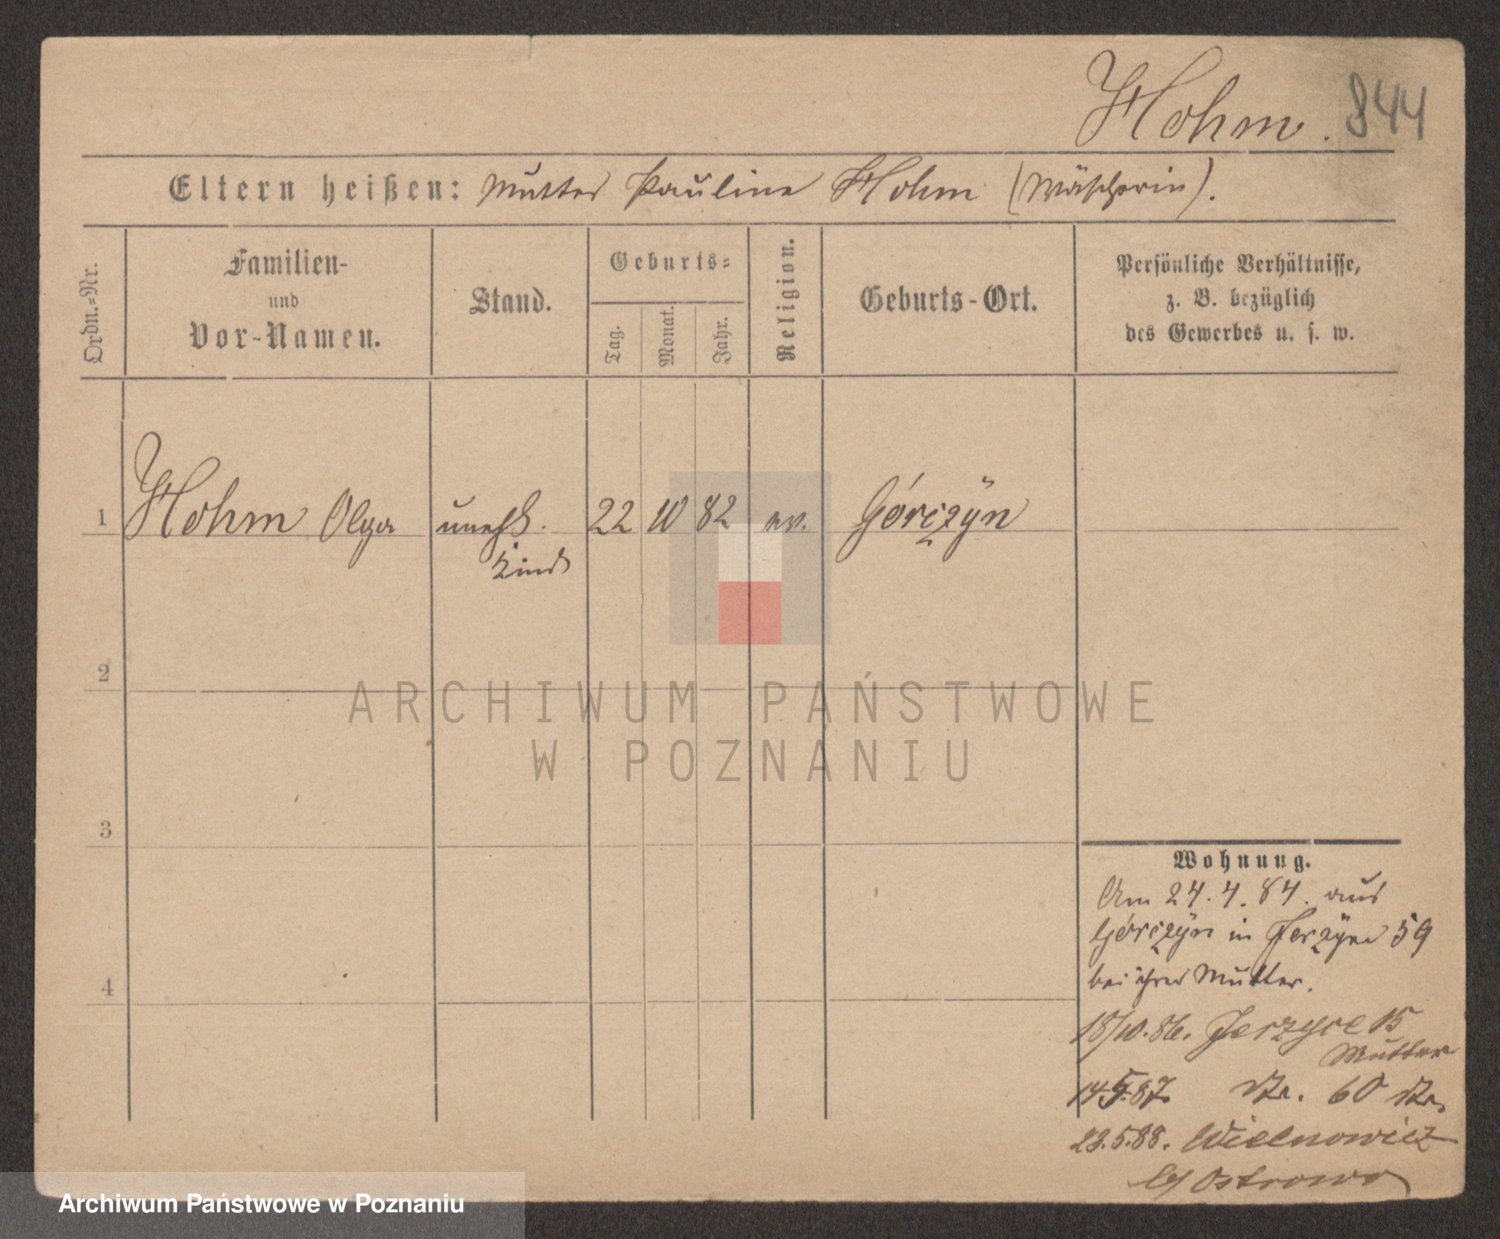 Hohm. 844
Eltern heißen: Mutter Pauline Hohm (Wäscherin).
Ordn.-Nr.
Familien-
und
Vor-Namen.
Stand.
Geburts-
Tag.
Monat.
Jahr.
Religion.
Geburts-Ort.
Persönliche Verhältnisse,
z. B. bezüglich
des Gewerbes u. s. w.
1 Hohm Olga unehl. 22 10 82 ev. Górczyn
Kind
2
3
4
ARCHIWUM PAŃSTWOWE
W POZNANIU
Wohnung.
Am 24.4.84. aus
Górczyn in Jerzyce 59
bei ihrer Mutter.
18/10.86. Jerzyce 15
Mutter
14.5.87. 60
23.5.88.
b/ Ostrowo
Archiwum Państwowe w Poznaniu